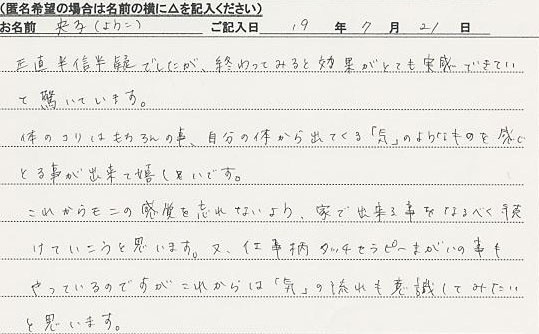 (匿名希望の場合は名前の横に△を記入ください)
お名前 央子(よりこ) ご記入日 19 年 7 月 21 日
正直半信半疑でしたが、終わってみると効果がとても実感できてい
て驚いています。
体のコリはもちろんの事、自分の体から出てくる「気」のようなものを感じ
とる事が出来て嬉しいです。
これからもこの感覚を忘れないよう、家で出来る事をなるべく続
けていこうと思います。又、仕事柄タッチセラピーまがいの事も
やっているのですがこれからは「気」の流れも意識してみたい
と思います。